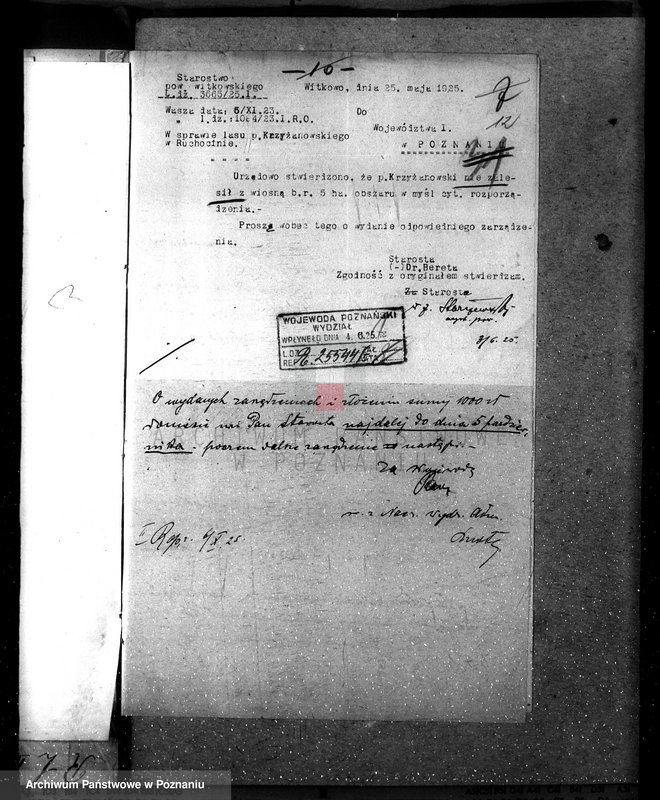 -16-
Starostwo
pow. witkowskiego
L.dz. 3665/25.I.
Witkowo, dnia 25. maja 1925.
7
12
Wasza data: 5/XI.23.
" l.dz.:1084/23.I.R.O.
Do
Województwa I.
w POZNANIU
W sprawie lasu p.Krzyżanowskiego
w Ruchocinie.
Urzędowo stwierdzono, że p.Krzyżanowski nie zale-
sił z wiosną b.r. 5 ha. obszaru w myśl cyt. rozporzą-
dzenia.-
Proszę wobec tego o wydanie odpowiedniego zarządze-
nia.
Starosta
(-)Dr.Bereta
Zgodność z oryginałem stwierdzam.
Za Starostę
3/6. 25.
WOJEWODA POZNAŃSKI
WYDZIAŁ
WPŁYNĘŁO DNIA 4.6.25
L.DZ. 25544
O wydanych zarządzeniach i złożeniu sumy 1000 zł
doniesie mi Pan Starosta najdalej do dnia 5 paździer-
nika - poczem dalsze zarządzenie nastąpi.-
Za Wojewodę
w. z. Nacz. Wydz. Adm.
Archiwum Państwowe w Poznaniu
W POZNANIU